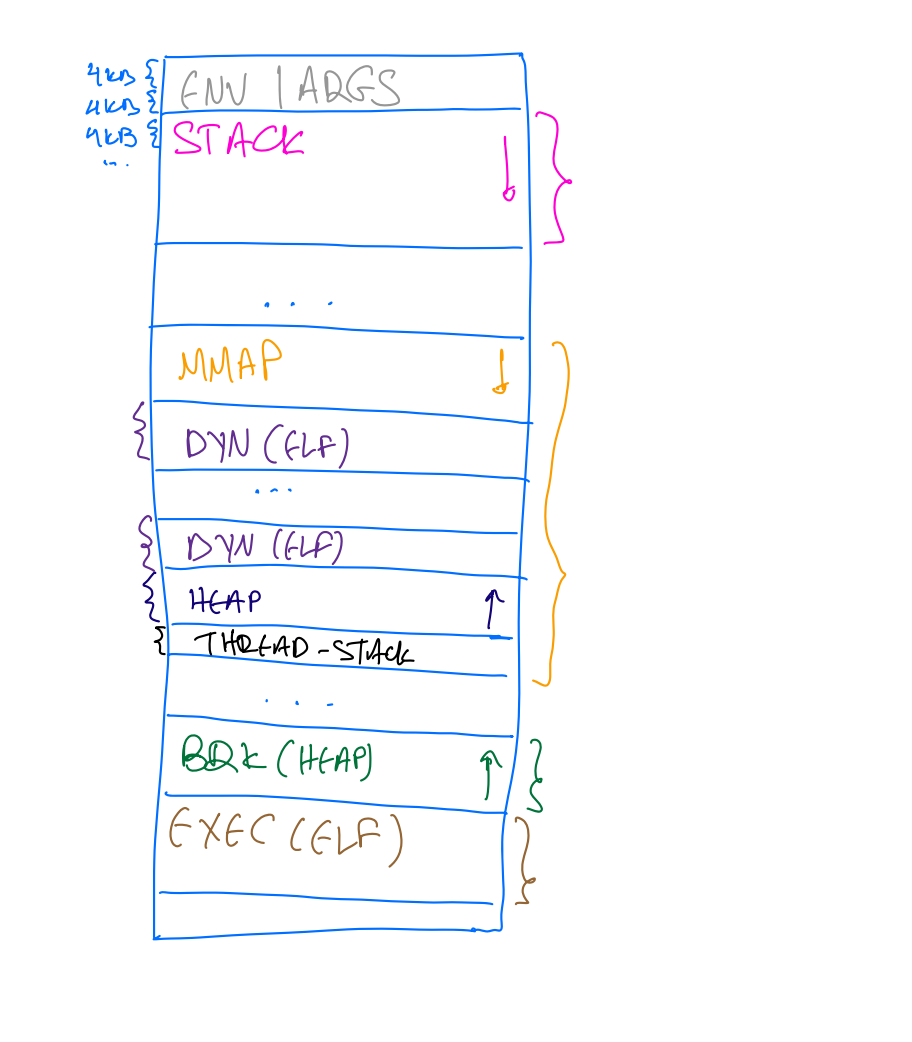 4KB
ENV | ARGS
4KB
4KB
STACK
...
...
MMAP
DYN (ELF)
...
DYN (ELF)
HEAP
THREAD-STACK
...
BRK (HEAP)
EXEC (ELF)